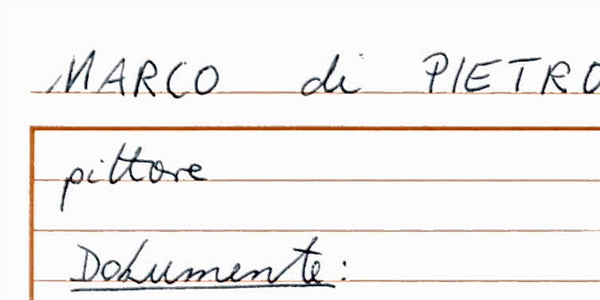 MARCO di PIETRO
pittore
Dokumente: